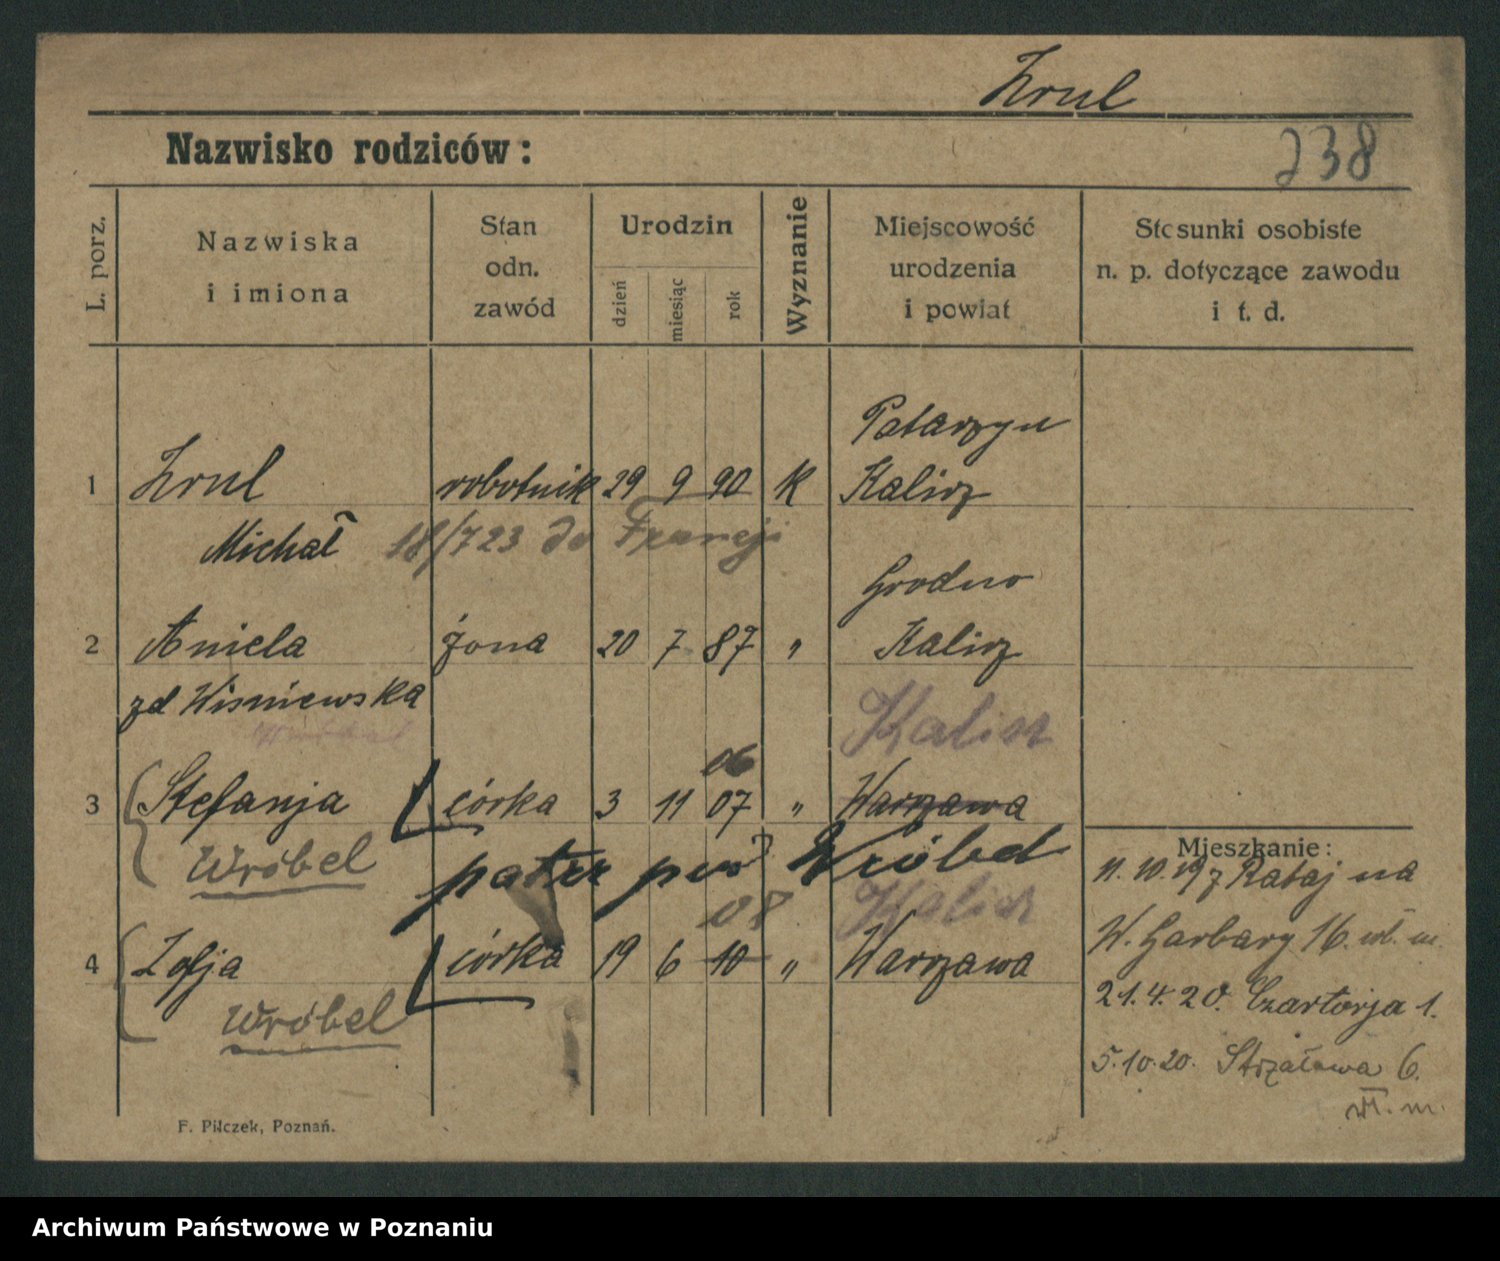 Zrul
Nazwisko rodziców:
238
L. porz.
Nazwiska
i imiona
Stan
odn.
zawód
Urodzin
dzień
miesiąc
rok
Wyznanie
Miejscowość
urodzenia
i powiat
Stosunki osobiste
n. p. dotyczące zawodu
i t. d.
Patarzyn
1 Zrul robotnik 29 9 90 K Kalisz
Michał 18/7 23 do Francji
Grodno
2 Aniela żona 20 7 87 " Kalisz
zd Wiśniewska
Kalisz
06
3 Stefanja córka 3 11 07 " Warszawa
Wróbel
patrz pod Wróbel
08 Kalisz
4 Zofja córka 19 6 10 " Warszawa
Wróbel
Mieszkanie:
11. 10. 19 z Rataj na
W. Garbary 16. wł. m.
21. 4. 20. Czartorja 1.
5. 10. 20. Strzałowa 6.
wł. m.
F. Pilczek, Poznań.
Archiwum Państwowe w Poznaniu